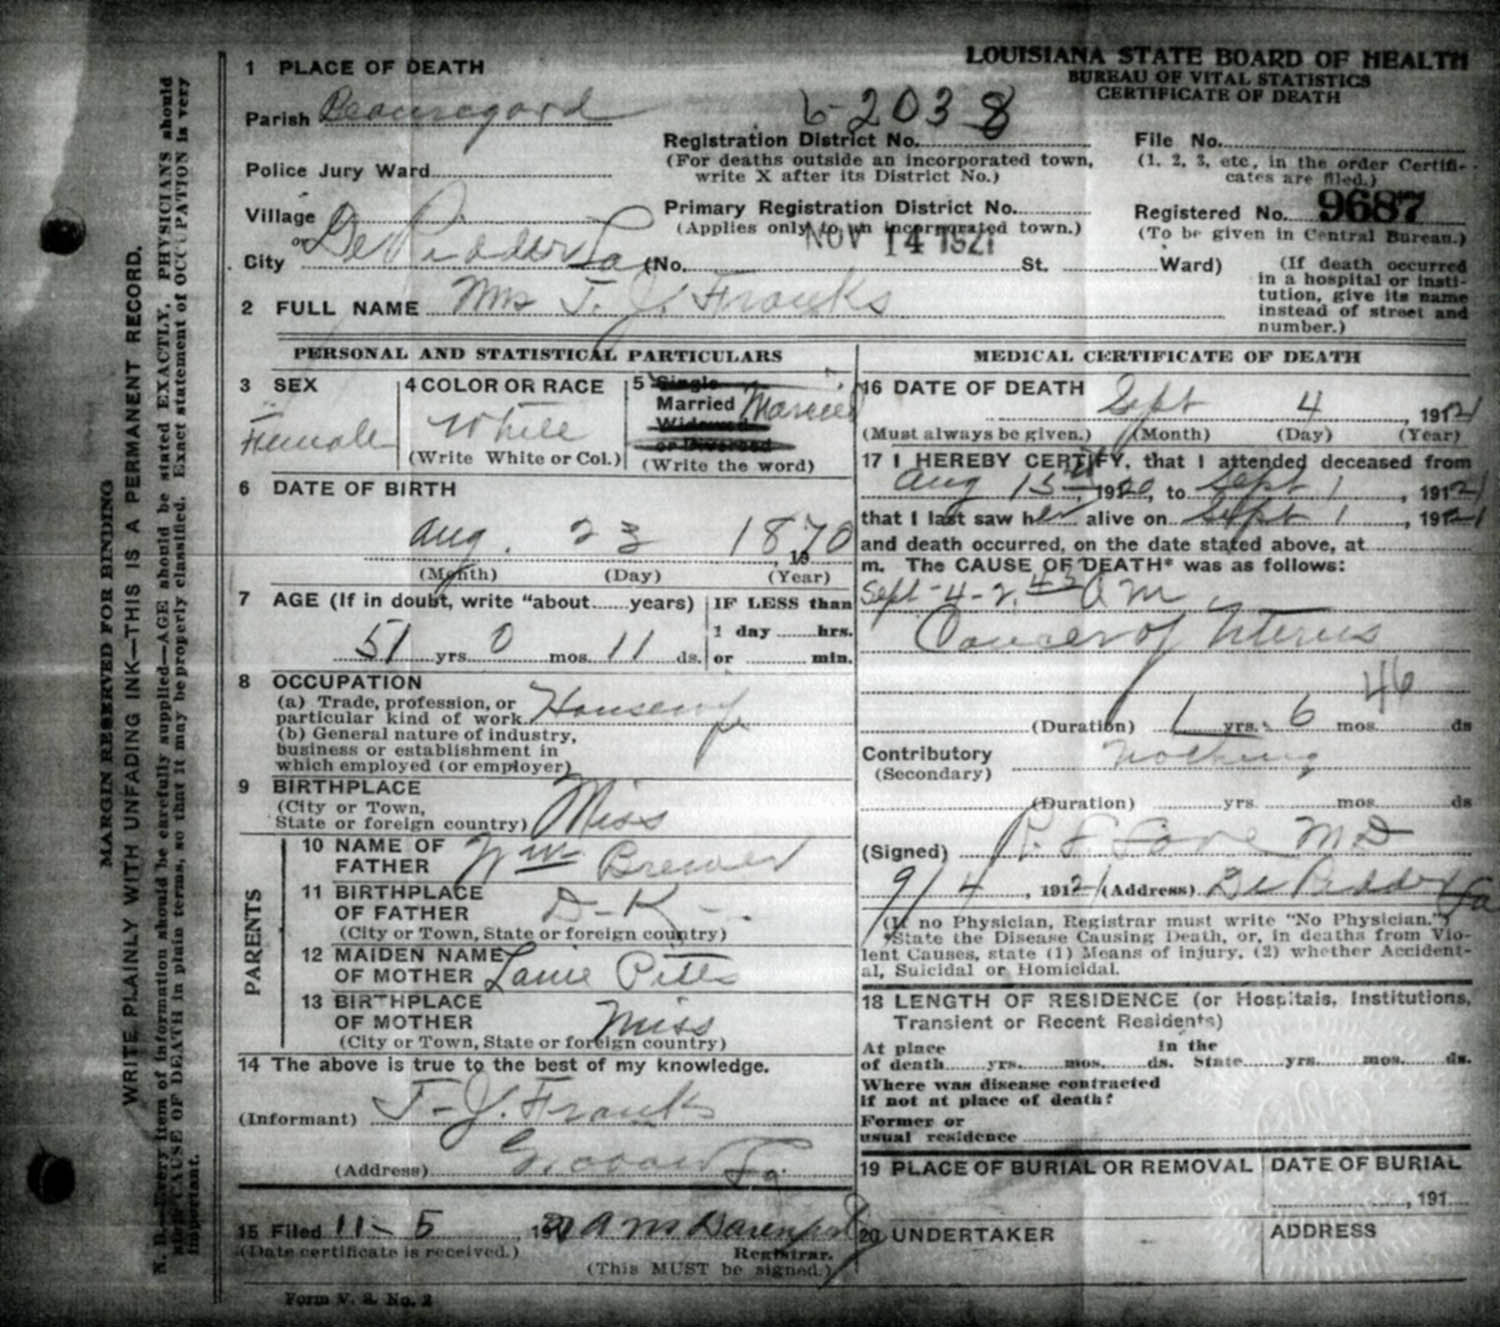 LOUISIANA STATE BOARD OF HEALTH
BUREAU OF VITAL STATISTICS
CERTIFICATE OF DEATH
1 PLACE OF DEATH
Parish Beauregard
Police Jury Ward
Village
or
City De Ridder La
Registration District No. 6-2038
(For deaths outside an incorporated town,
write X after its District No.)
Primary Registration District No.
(Applies only to an incorporated town.)
NOV 14 1921
(No. St. Ward)
File No.
(1, 2, 3, etc., in the order Certifi-
cates are filed.)
Registered No. 9687
(To be given in Central Bureau.)
(If death occurred
in a hospital or insti-
tution, give its name
instead of street and
number.)
2 FULL NAME Mrs T. J. Franks
PERSONAL AND STATISTICAL PARTICULARS
3 SEX
Female
4 COLOR OR RACE
White
(Write White or Col.)
5 Single
Married Married
Widowed
or Divorced
(Write the word)
6 DATE OF BIRTH
Aug. 23 1870
, 18
(Month) (Day) (Year)
7 AGE (If in doubt, write "about......years)
51 yrs 0 mos. 11 ds.
IF LESS than
1 day ......hrs.
or ......... min.
8 OCCUPATION
(a) Trade, profession, or
particular kind of work. Housewife
(b) General nature of industry,
business or establishment in
which employed (or employer)
9 BIRTHPLACE
(City or Town,
State or foreign country) Miss
PARENTS
10 NAME OF
FATHER Wm Brewer
11 BIRTHPLACE
OF FATHER D-K-.
(City or Town, State or foreign country)
12 MAIDEN NAME
OF MOTHER Pitts
13 BIRTHPLACE
OF MOTHER Miss
(City or Town, State or foreign country)
14 The above is true to the best of my knowledge.
(Informant) T-J. Franks
(Address) La.
15 Filed 11-5 1921 A M Davenport
(Date certificate is received.) Registrar.
(This MUST be signed.)
Form V. S. No. 2
MEDICAL CERTIFICATE OF DEATH
16 DATE OF DEATH Sept 4 , 1921
(Must always be given.) (Month) (Day) (Year)
17 I HEREBY CERTIFY, that I attended deceased from
Aug 15 , 1920, to Sept 1 , 1921
that I last saw her alive on Sept 1 , 1921
and death occurred, on the date stated above, at
m. The CAUSE OF DEATH* was as follows:
Sept-4-2.45 am
Cancer of Uterus
46
(Duration) 1 yrs. 6 mos. ds
Contributory Nothing
(Secondary)
(Duration) yrs. mos. ds
(Signed) Love MD
9/4, 1921 (Address) De Ridder La
(If no Physician, Registrar must write "No Physician.")
*State the Disease Causing Death, or, in deaths from Vio-
lent Causes, state (1) Means of injury, (2) whether Accident-
al, Suicidal or Homicidal.
18 LENGTH OF RESIDENCE (or Hospitals, Institutions,
Transient or Recent Residents)
At place In the
of death......yrs......mos......ds. State......yrs......mos......ds.
Where was disease contracted
if not at place of death?
Former or
usual residence
19 PLACE OF BURIAL OR REMOVAL
DATE OF BURIAL
, 191
20 UNDERTAKER
ADDRESS
MARGIN RESERVED FOR BINDING
WRITE PLAINLY WITH UNFADING INK—THIS IS A PERMANENT RECORD.
N. B.—Every item of information should be carefully supplied—AGE should be stated EXACTLY, PHYSICIANS should
state CAUSE OF DEATH in plain terms, so that it may be properly classified. Exact statement of OCCUPATION is very
important.